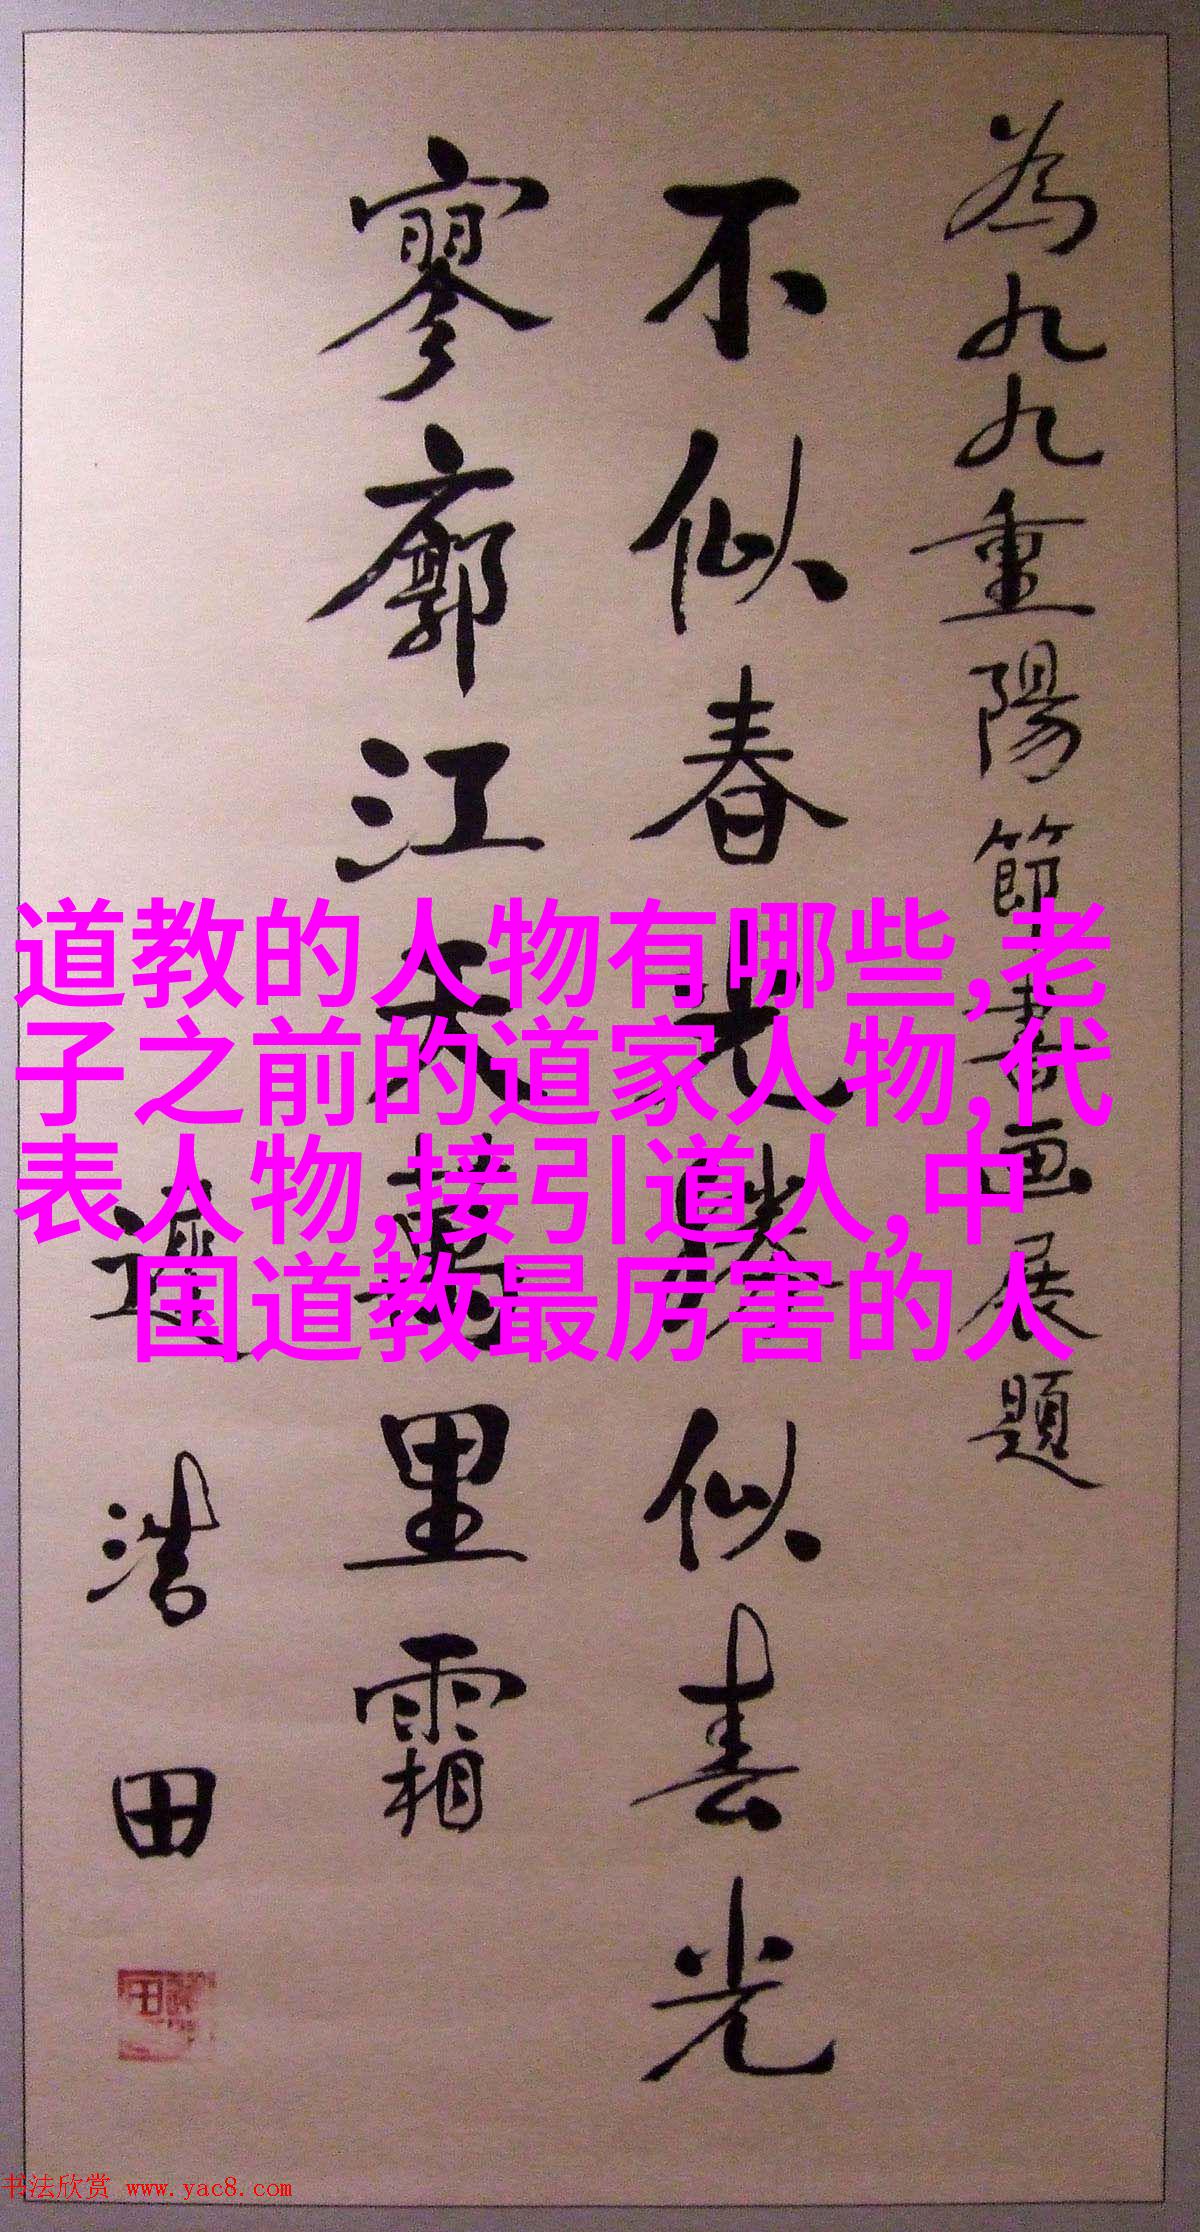 為九九重陽節書画展題
不似春光勝似春光
寥廓江天萬里霜
浩田
道教的人物有哪些,老
子之前的道家人物,代
表人物,接引道人,中
国道教最厉害的人
书法欣赏 www.yac8.com